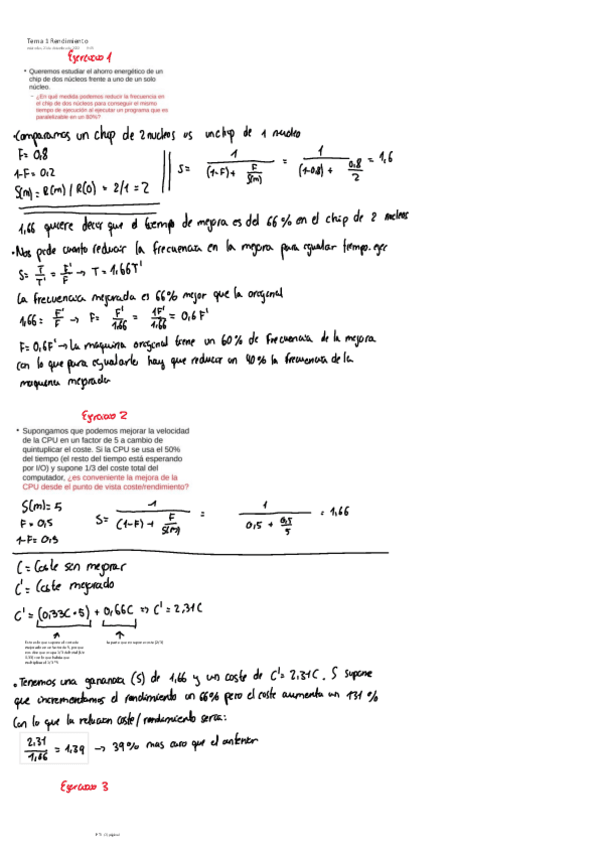 Tema 1 Rendimiento
Ejercicio 1
• Queremos estudiar el ahorro energético de un
chip de dos núcleos frente a uno de un solo
núcleo.
– ¿En qué medida podemos reducir la frecuencia en
el chip de dos núcleos para conseguir el mismo
tiempo de ejecución al ejecutar un programa que es
paralelizable en un 80%?
• Comparamos un chip de 2 nucleos vs un chip de 1 nucleo
F = 0,8
1-F = 0,2
S(m) = R(m) / R(0) = 2/1 = 2
S = 1 / ((1-F) + F/S(m)) = 1 / ((1-0.8) + 0.8/2) = 1,6
1,66 quiere decir que el tiempo de mejora es del 66% en el chip de 2 nucleos
• Nos pide cuanto reducir la frecuencia en la mejora para igualar tiempo. ejec
S = T/T' = F'/F → T = 1,66T'
La frecuencia mejorada es 66% mejor que la original
1,66 = F'/F → F = F'/1,66 = 1F'/1,66 = 0,6 F'
F = 0,6F' → La maquina original tiene un 60% de frecuencia de la mejora
con lo que para igualarle hay que reducir un 40% la frecuencia de la
maquina mejorada
Ejercicio 2
• Supongamos que podemos mejorar la velocidad
de la CPU en un factor de 5 a cambio de
quintuplicar el coste. Si la CPU se usa el 50%
del tiempo (el resto del tiempo está esperando
por I/O) y supone 1/3 del coste total del
computador, ¿es conveniente la mejora de la
CPU desde el punto de vista coste/rendimiento?
S(m) = 5
F = 0,5
1-F = 0,5
S = 1 / ((1-F) + F/S(m)) = 1 / (0,5 + 0,5/5) = 1,66
C = Coste sin mejorar
C' = Coste mejorado
C' = (0,33C • 5) + 0,66C => C' = 2,31C
• Tenemos una ganancia (S) de 1,66 y un coste de C' = 2,31C. S supone
que incrementamos el rendimiento un 66% pero el coste aumenta un 131 %
Con lo que la relacion coste/rendimiento seria:
2,31/1,66 = 1,39 → 39% mas caro que el anterior
Ejercicio 3